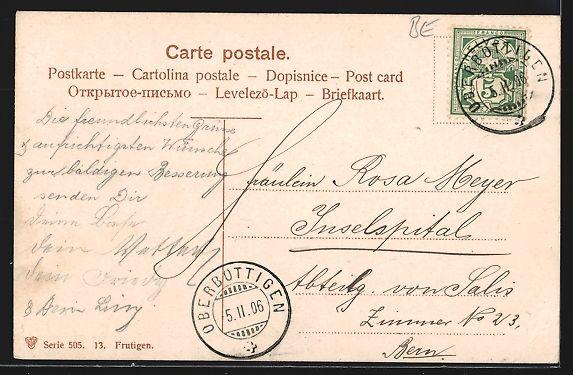 BE
Carte postale.
Postkarte – Cartolina postale – Dopisnice – Post card
Открытое-письмо – Levelező-Lap – Briefkaart.
FRANCO
5
OBERBOTTIGEN
5.II.06
Die freundlichsten Grüsse
& aufrichtigsten Wünsche
zur baldigen Besserung
senden Dir
Deine Base
Dein Vetter
Dein
&
Fräulein Rosa Meyer
Inselspital
Abteilg von Salis
Zimmer No 23,
Bern.
OBERBOTTIGEN
5.II.06
Serie 505. 13. Frutigen.